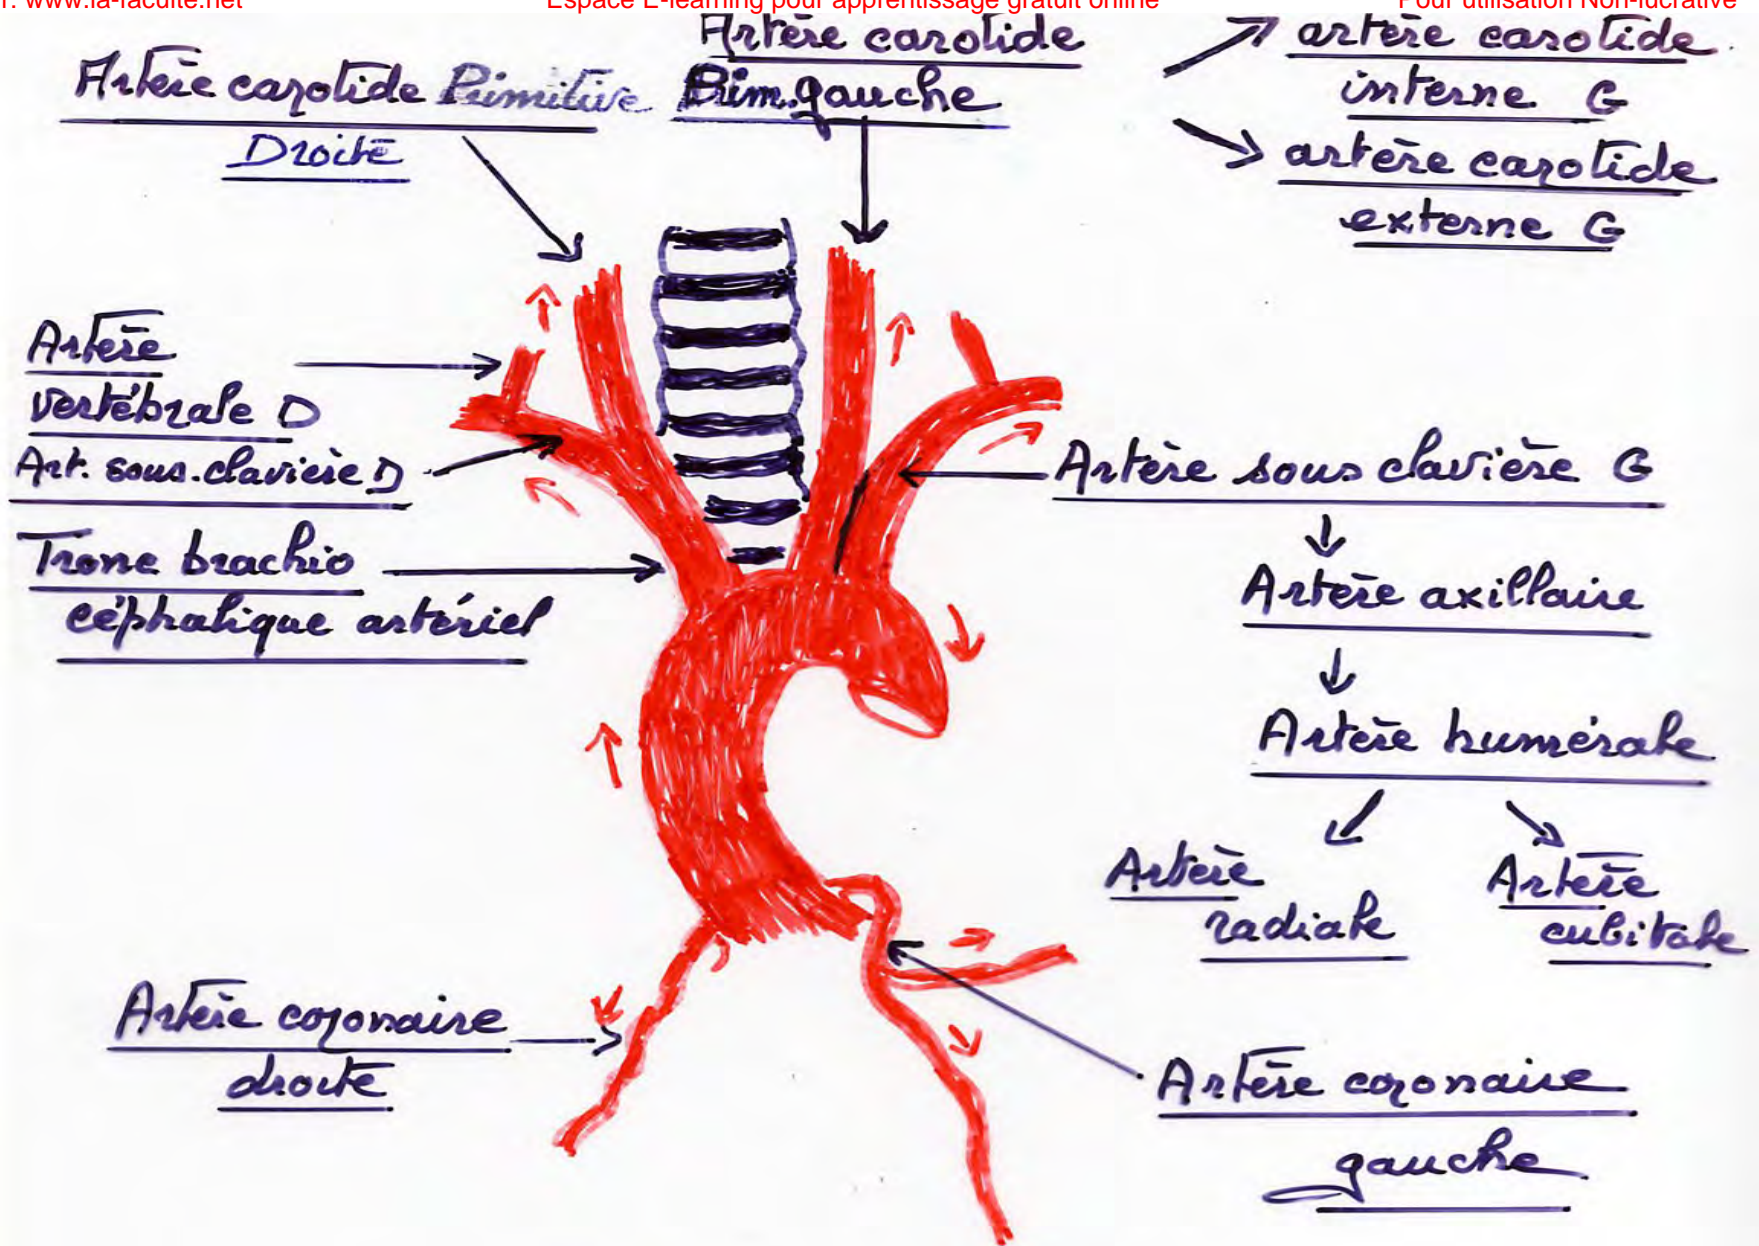 r: www.la-faculte.net
Espace E-learning pour apprentissage gratuit online
Pour utilisation Non-lucrative
Artère carotide Primitive
Droite
Artère carotide
Prim. gauche
artère carotide
interne G
artère carotide
externe G
Artère
vertébrale D
Art. sous.clavière D
Tronc brachio
céphalique artériel
Artère sous clavière G
Artère axillaire
Artère humérale
Artère
radiale
Artère
cubitale
Artère coronaire
droite
Artère coronaire
gauche